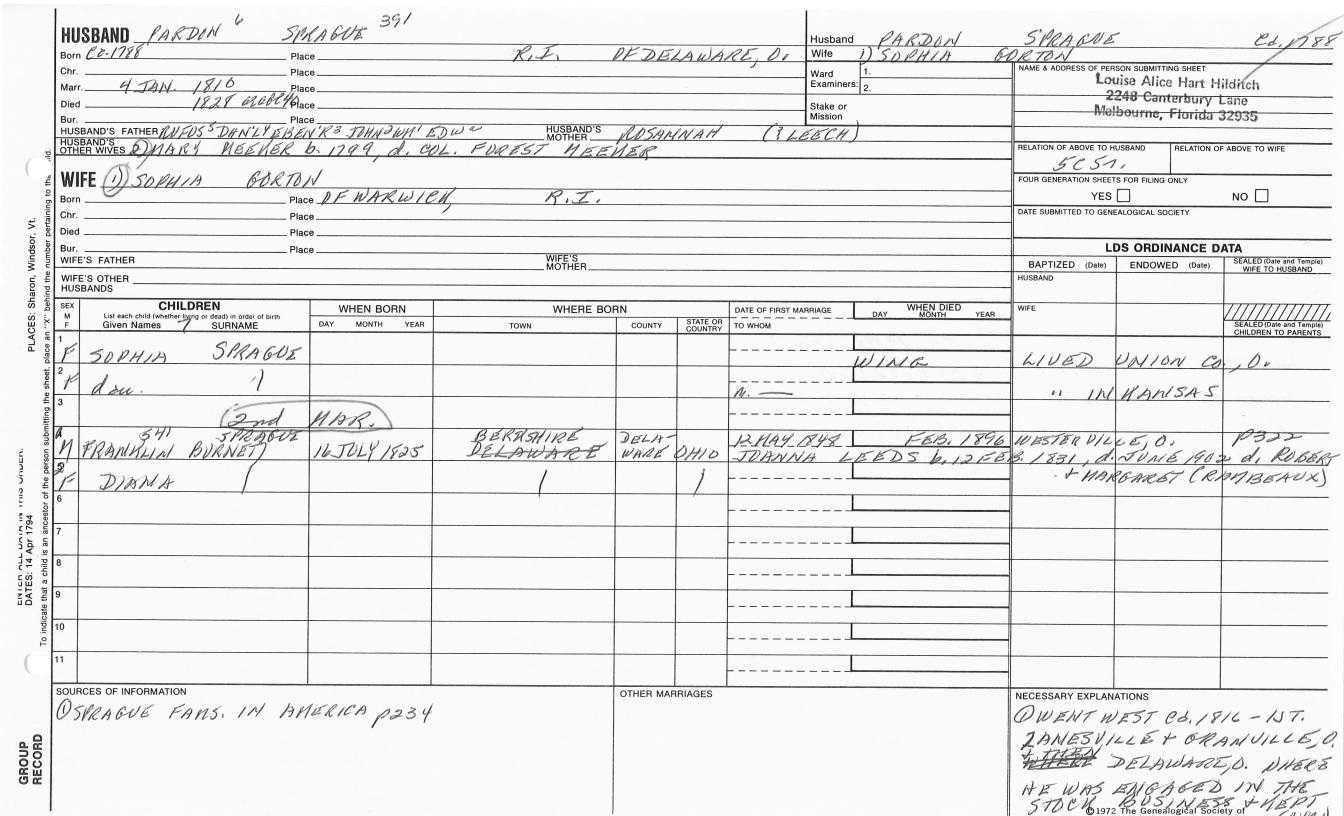 HUSBAND PARDON 6 SPRAGUE 391
Born Ca-1788 Place R.I. OF DELAWARE, O.
Chr. Place
Marr. 4 JAN. 1810 Place
Died 1828 Place
Bur. Place
HUSBAND'S FATHER RUFUS5 DAN'L4 EBEN'R3 JOHN2 WM1 EDW HUSBAND'S MOTHER ROSAMNAH (? LEECH)
HUSBAND'S OTHER WIVES 2) MARY MEEKER b. 1799, d. COL. FOREST MEEKER
WIFE 1) SOPHIA GORTON
Born Place OF WARWICK, R.I.
Chr. Place
Died Place
Bur. Place
WIFE'S FATHER WIFE'S MOTHER
WIFE'S OTHER HUSBANDS
Husband PARDON SPRAGUE Ca. 1788
Wife 1) SOPHIA GORTON
Ward Examiners: 1. 2.
Stake or Mission
NAME & ADDRESS OF PERSON SUBMITTING SHEET
Louise Alice Hart Hilditch
2248 Canterbury Lane
Melbourne, Florida 32935
RELATION OF ABOVE TO HUSBAND RELATION OF ABOVE TO WIFE
5C5r.
FOUR GENERATION SHEETS FOR FILING ONLY
YES NO
DATE SUBMITTED TO GENEALOGICAL SOCIETY
LDS ORDINANCE DATA
BAPTIZED (Date) ENDOWED (Date) SEALED (Date and Temple) WIFE TO HUSBAND
HUSBAND
WIFE
SEALED (Date and Temple) CHILDREN TO PARENTS
SEX M F
CHILDREN
List each child (whether living or dead) in order of birth
Given Names SURNAME
WHEN BORN
DAY MONTH YEAR
WHERE BORN
TOWN COUNTY STATE OR COUNTRY
DATE OF FIRST MARRIAGE
TO WHOM
WHEN DIED
DAY MONTH YEAR
1 F SOPHIA SPRAGUE WING LIVED UNION Co., O.
2 F dau. " m. — " IN KANSAS
3 2nd MAR.
4 M FRANKLIN BURNET 541 SPRAGUE 16 JULY 1825 BERKSHIRE DELAWARE DELAWARE OHIO 12 MAY 1848 FEB. 1896 WESTERVILLE, O. p322
JOANNA LEEDS b. 12 FEB. 1831, d. JUNE 1902 d. ROBERT
+ MARGARET (RAMBEAUX)
5 F DIANA
6
7
8
9
10
11
SOURCES OF INFORMATION
① SPRAGUE FAMS. IN AMERICA p234
OTHER MARRIAGES
NECESSARY EXPLANATIONS
① WENT WEST Ca. 1816 - 1ST.
ZANESVILLE + GRANVILLE, O.
+ THEN DELAWARE, O. WHERE
HE WAS ENGAGED IN THE
STOCK BUSINESS + KEPT
©1972 The Genealogical Society of
PLACES: Sharon, Windsor, Vt.
DATES: 14 Apr 1794
To indicate that a child is an ancestor of the person submitting the sheet, place an "X" behind the number pertaining to
GROUP RECORD